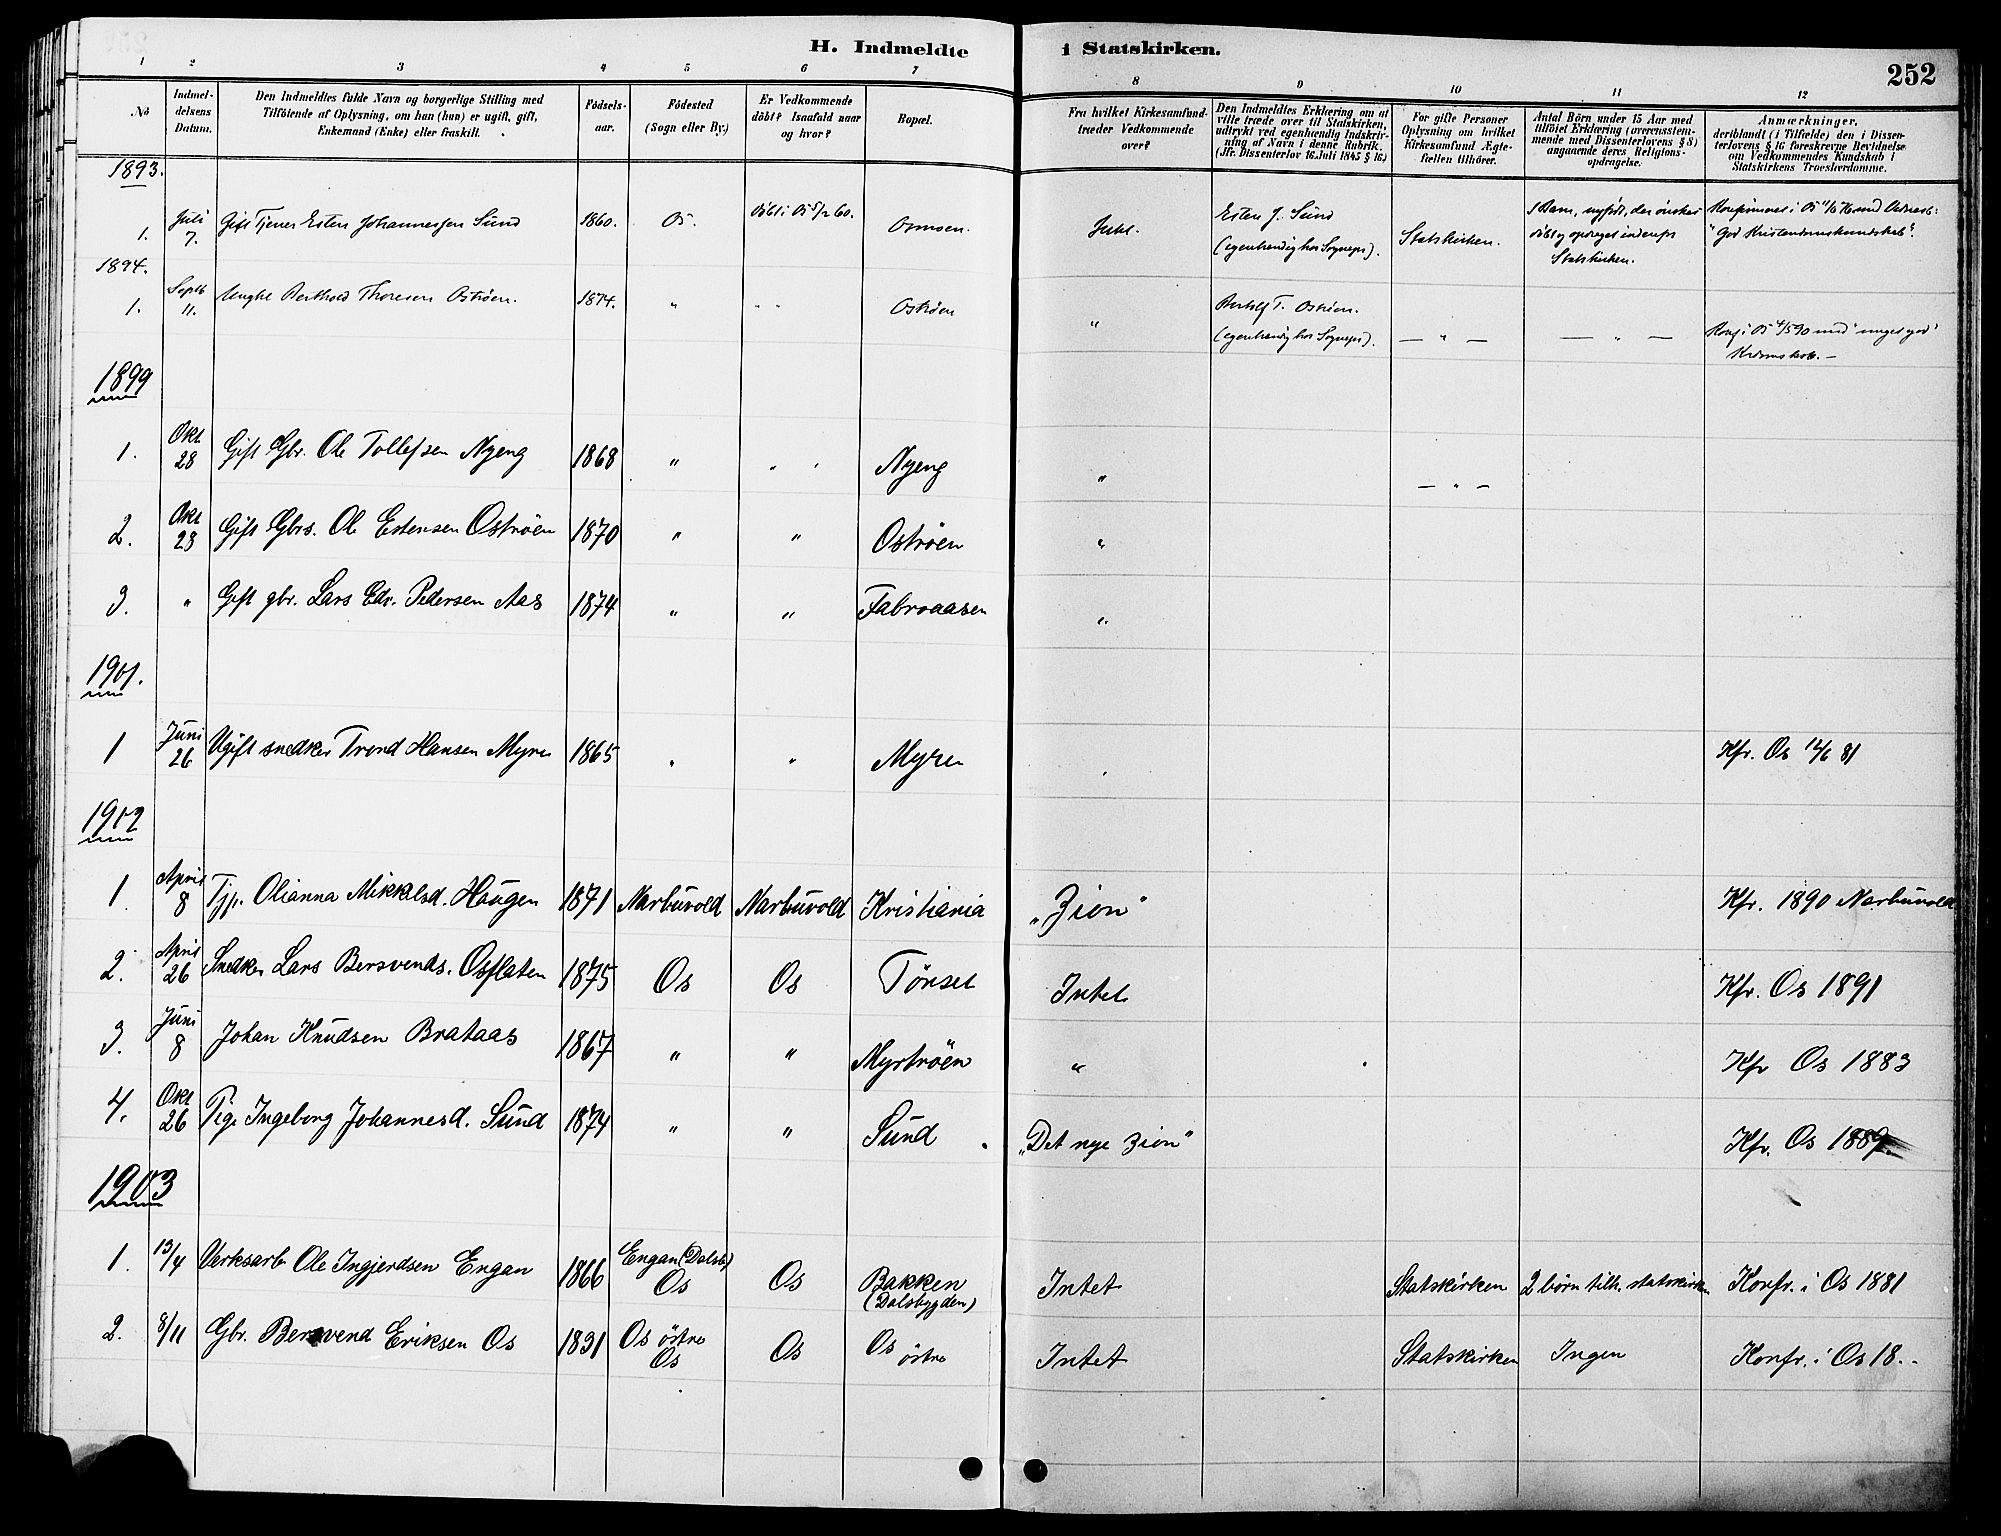 H. Indmeldte i Statskirken.
252
1 2 3 4 5 6 7 8 9 10 11 12
No
Indmel-
delsens
Datum.
Den Indmeldtes fulde Navn og borgerlige Stilling med
Tilföiende af Oplysning, om han (hun) er ugift, gift,
Enkemand (Enke) eller fraskilt.
Födsels-
aar.
Födested
(Sogn eller By.)
Er Vedkommende
döbt? Isaafald naar
og hvor?
Bopæl.
Fra hvilket Kirkesamfund
træder Vedkommende
over?
Den Indmeldtes Erklæring om at
ville træde over til Statskirken,
udtrykt ved egenhændig Indskriv-
ning af Navn i denne Rubrik.
(Jfr. Dissenterlov 16.Juli 1845 § 16.)
For gifte Personer
Oplysning om hvilket
Kirkesamfund Ægte-
fællen tilhörer.
Antal Börn under 15 Aar med
tilföiet Erklæring (overensstem-
mende med Dissenterlovens § 8)
angaaende deres Religions-
opdragelse.
Anmærkninger,
deriblandt (i Tilfælde) den i Dissen-
terlovens § 16 foreskrevne Bevidnelse
om Vedkommendes Kundskab i
Statskirkens Troeslærdomme.
1893.
1. Juli 7. Gift Tjener Esten Johannessen Sund 1860. Os. döbt i Os 5/2 60. Osmoen. Intet. Esten J. Sund (egenhændig hos Sognepr). Statskirken. 1 Barn, nyfödt, der önskes döbt og opdraget indenfor Statskirken. Konfirmeret i Os 11/6 76 med Vidnesb: "God Kristendomskundskab".
1894.
1. Septb 11. Ungkl Berthold Thoresen Oströen. 1874. " " " Oströen " T. Oströen. (egenhændig hos Sognepr). — " — — " — Konf i Os 4/5 90 med "meget god" Kdomskab. —
1899
1. Okt 28 Gift Gbr. Ole Tollefsen Nyeng 1868 " " " Nyeng " — " —
2. Okt 28 Gift Gbrs. Ole Estensen Oströen 1870 " " Oströen "
3. " Gift gbr. Lars Edv. Pedersen Aas 1874 " " Fabroaasen "
1901.
1 Juni 26 Ugift snedker Trond Hansen Myren 1865 " " Myren " Kfr. Os 12/6 81
1902
1. April 8 Tjp. Olianna Mikkelsd. Haugen 1871 Narbuvold Narbuvold Kristiania "Zion" Kfr. 1890 Narbuvold
2. April 26 Snedker Lars Bersvends. Osflaten 1875 Os Os Tönset Intet Kfr. Os 1891
3. Juni 8 Johan Knudsen Brataas 1867 " " Myrtröen " Kfr Os 1883
4. Okt 26 Pige Ingeborg Johannesd. Sund 1874 " " Sund "Det nye Zion" Kfr. Os 1889.
1903
1. 13/4 Verksarb Ole Ingjerdsen Engan 1866 Engan (Dalsb.) Os Os Bakken (Dalsbygden) Intet Statskirken 2 börn tilh. statskirken Konfr. i Os 1881
2. 8/11 Gbr. Bersvend Eriksen Os 1831 Os östre Os Os Os östre Intet Statskirken Ingen Konfr. i Os 18..